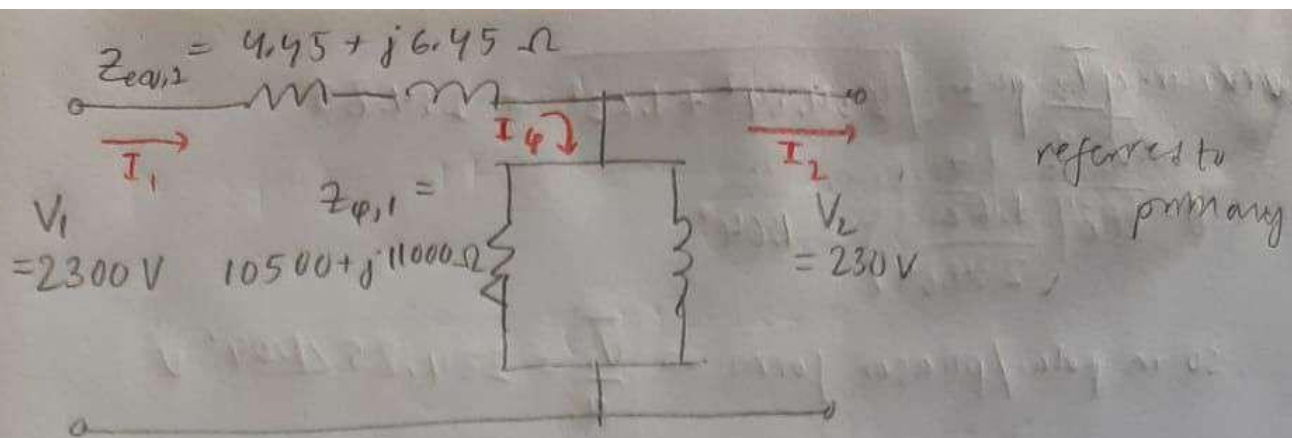 Zeq,1 = 4.45 + j6.45 Ω
I1
Iφ
I2
referred to
primary
Zφ,1 =
V1
= 2300 V
10500 + j11000 Ω
V2
= 230 V